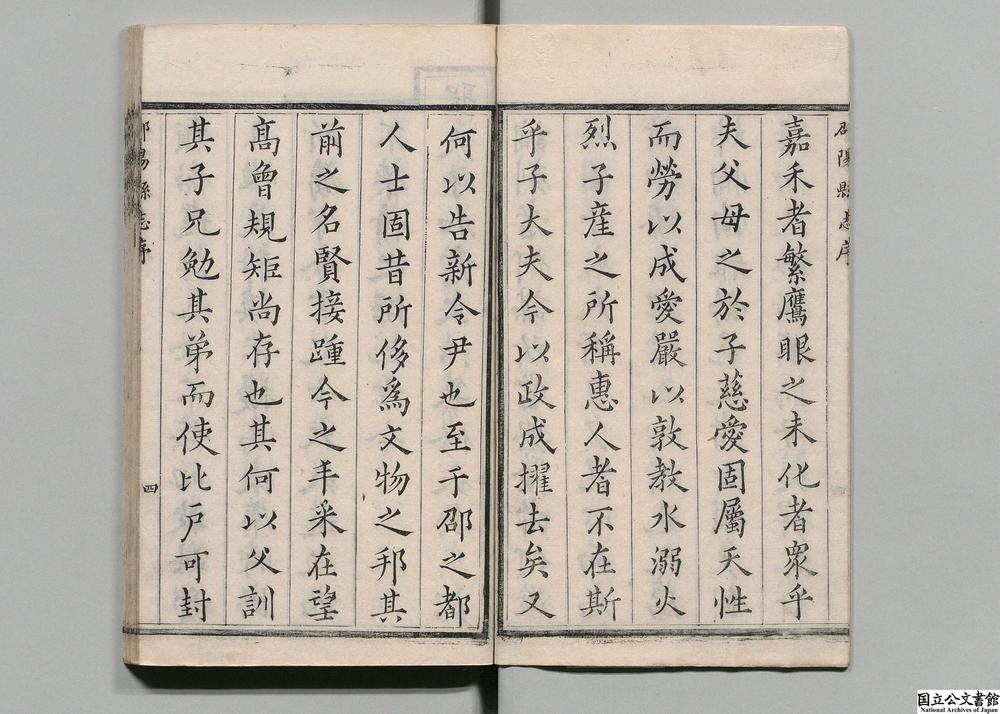 邵陽縣志序
嘉禾者繁鷹眼之未化者衆乎
夫父母之於子慈愛固屬天性
而勞以成愛嚴以敦教水溺火
烈子產之所稱惠人者不在斯
乎子大夫今以政成擢去矣又
何以告新令尹也至于邵之都
人士固昔所侈爲文物之邦其
前之名賢接踵今之丰采在望
高曾規矩尚存也其何以父訓
其子兄勉其弟而使比戸可封
邵陽縣志序
四
国立公文書館
National Archives of Japan